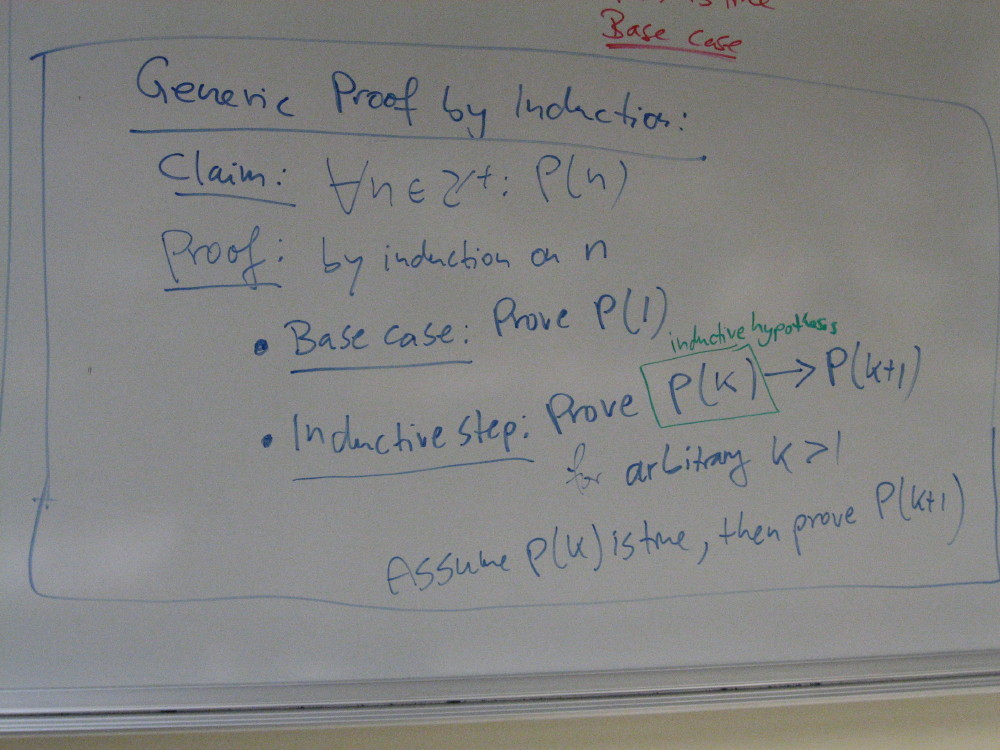 is true
Base case
Generic Proof by Induction:
Claim: ∀n ∈ Z+: P(n)
Proof: by induction on n
• Base case: Prove P(1)
inductive hypothesis
• Inductive step: Prove P(k) → P(k+1)
for arbitrary k>1
Assume P(k) is true, then prove P(k+1)